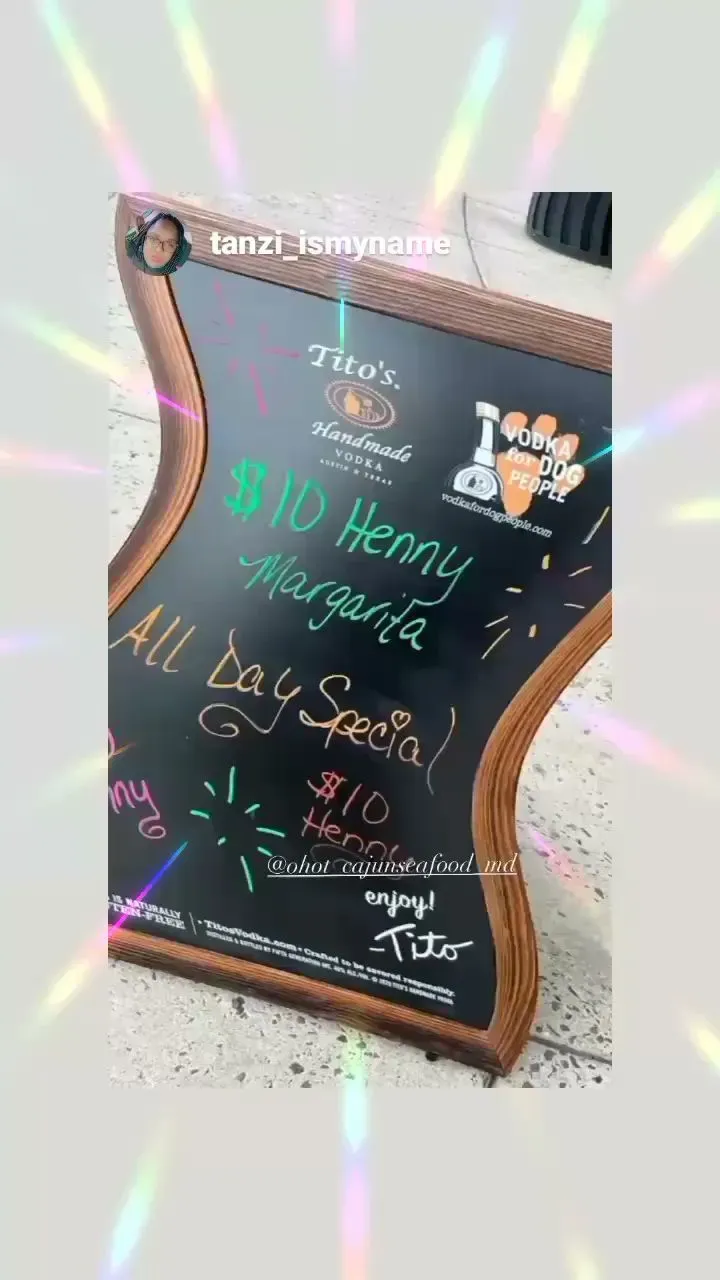 tanzi_ismyname
Tito's.
Handmade
VODKA
AUSTIN TEXAS
VODKA
for DOG
PEOPLE
vodkafordogpeople.com
$10 Henny
Margarita
All Day Special
nny
$10
Henny
@ohot_cajunseafood_md
enjoy!
-Tito
IS NATURALLY
TEN-FREE
• TitosVodka.com • Crafted to be savored responsibly.